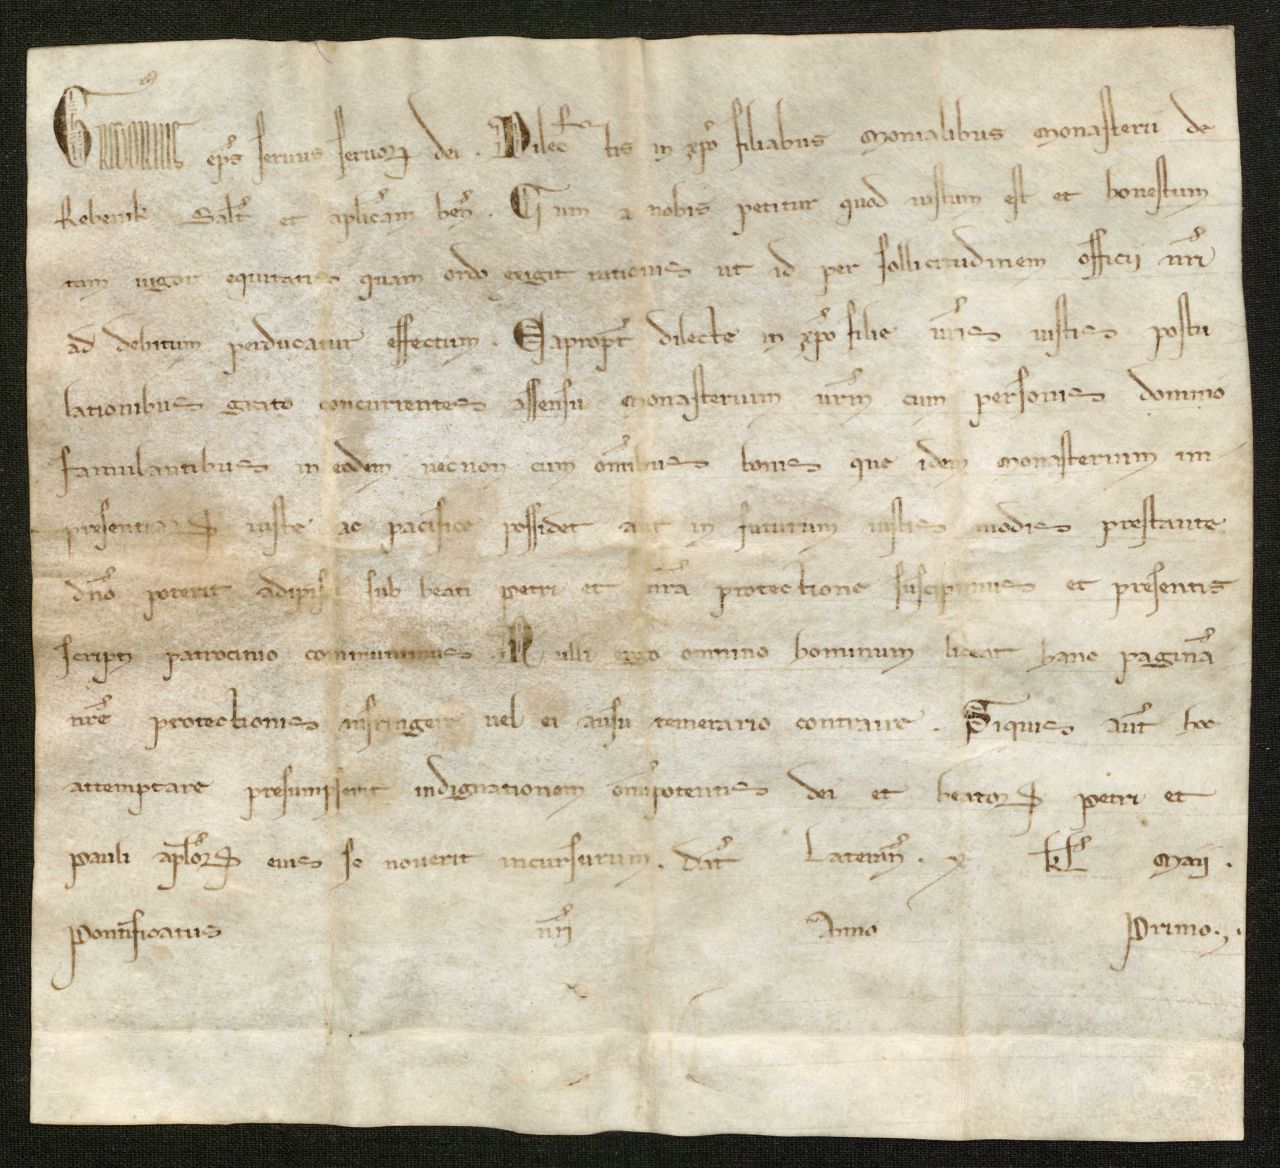 Gregorius ep̅s seruus seruoꝝ dei . Dilectis in xp̅o filiabus Monialibus Monasterii de
Rebenik Salt̅ et ap̅licam ben̅ . Cum a nobis petitur quod iustum est et honestum
tam uigor equitatis quam ordo exigit rationis ut id per sollicitudinem officii nr̅i
ad debitum perducatur effectum . Eapropt̅ dilecte in xp̅o filie ur̅is iustis postu
lationibus grato concurrentes assensu Monasterium ur̅m cum personis domino
famulantibus in eodem necnon cum om̅ibus bonis que idem Monasterium in
presentiaꝝ iuste ac pacifice possidet aut in futurum iustis modis prestante
dn̅o poterit adipisci sub beati Petri et nr̅a protectione suscipimus et presentis
scripti patrocinio communimus . Nulli ergo omnino hominum liceat hanc pagina̅
nr̅e protectionis infringere uel ei ausu temerario contraire . Siquis aut̅ hoc
attemptare presumpserit indignationem om̅ipotentis dei et beatoꝝ Petri et
Pauli ap̅loꝝ eius se nouerit incursurum . dat̅ Lateran̅ . x kl̅ Maii .
Pontificatus nr̅i Anno Primo . .